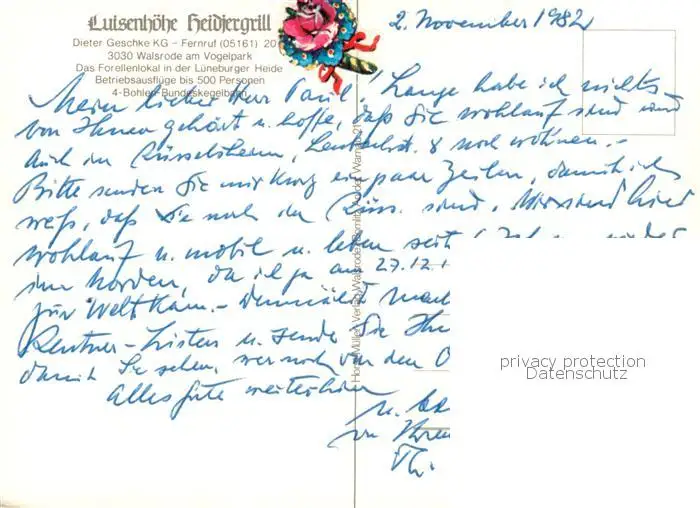 Luisenhöhe Heidjergrill
Dieter Geschke KG – Fernruf (05161) 20
3030 Walsrode am Vogelpark
Das Forellenlokal in der Lüneburger Heide
Betriebsausflüge bis 500 Personen
4-Bohlen-Bundeskegelbahn
2. November 1982
Mein lieber Herr Paul! Lange habe ich nichts
von Ihnen gehört u. hoffe, daß Sie wohlauf sind und
auch in Rüsselsheim, 8 noch wohnen.-
Bitte senden Sie mir kurz ein paar Zeilen, damit ich
weiß, daß Sie noch in Rüss. sind. Wir sind hier
wohlauf u. mobil u. leben seit
im Norden, da ich ja am 27.12.
zur Welt kam.- Demnächst
Rentner-Listen u. sende Sie
damit Sie sehen, wer noch von den
Alles Gute weiterhin
u.
von Ihrem
Th.
Horst Müller Verlag, Walsrode
privacy protection
Datenschutz